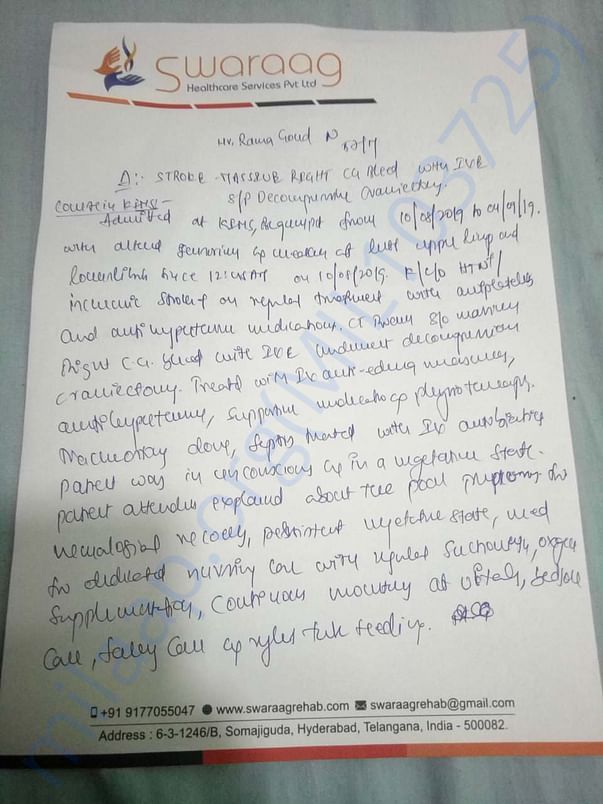 Swaraag
Healthcare Services Pvt Ltd
Mr. Rama Goud N
Δ:- STROKE - MASSIVE RIGHT CG Bleed with IVE
S/P Decompressive Craniectomy.
Admitted at KIMS, Begumpet from 10/08/2019 to 04/09/19.
with altered sensorium weakness of left upper limb and
lower limb since 12: on 10/08/2019. K/C/O HTN /
ischemic stroke on regular treatment with antiplatelets
and anti hypertensive medications. CT Brain S/o massive
Right C.G. bleed with IVE underwent decompressive
craniectomy. Treated with IV anti-edema measures,
antihypertensive, supportive medication physiotherapy.
Tracheostomy done, sepsis treated with IV antibiotics
patient was in unconscious in a vegetative state.
patient attenders explained about the poor for
neurological recovery, persistent vegetative state, need
for dedicated nursing care with regular suctioning, oxygen
supplementation, continuous monitoring of vitals, bedsore
care, foley care ryles tube feeding.
+91 9177055047 www.swaraagrehab.com swaraagrehab@gmail.com
Address : 6-3-1246/B, Somajiguda, Hyderabad, Telangana, India - 500082.